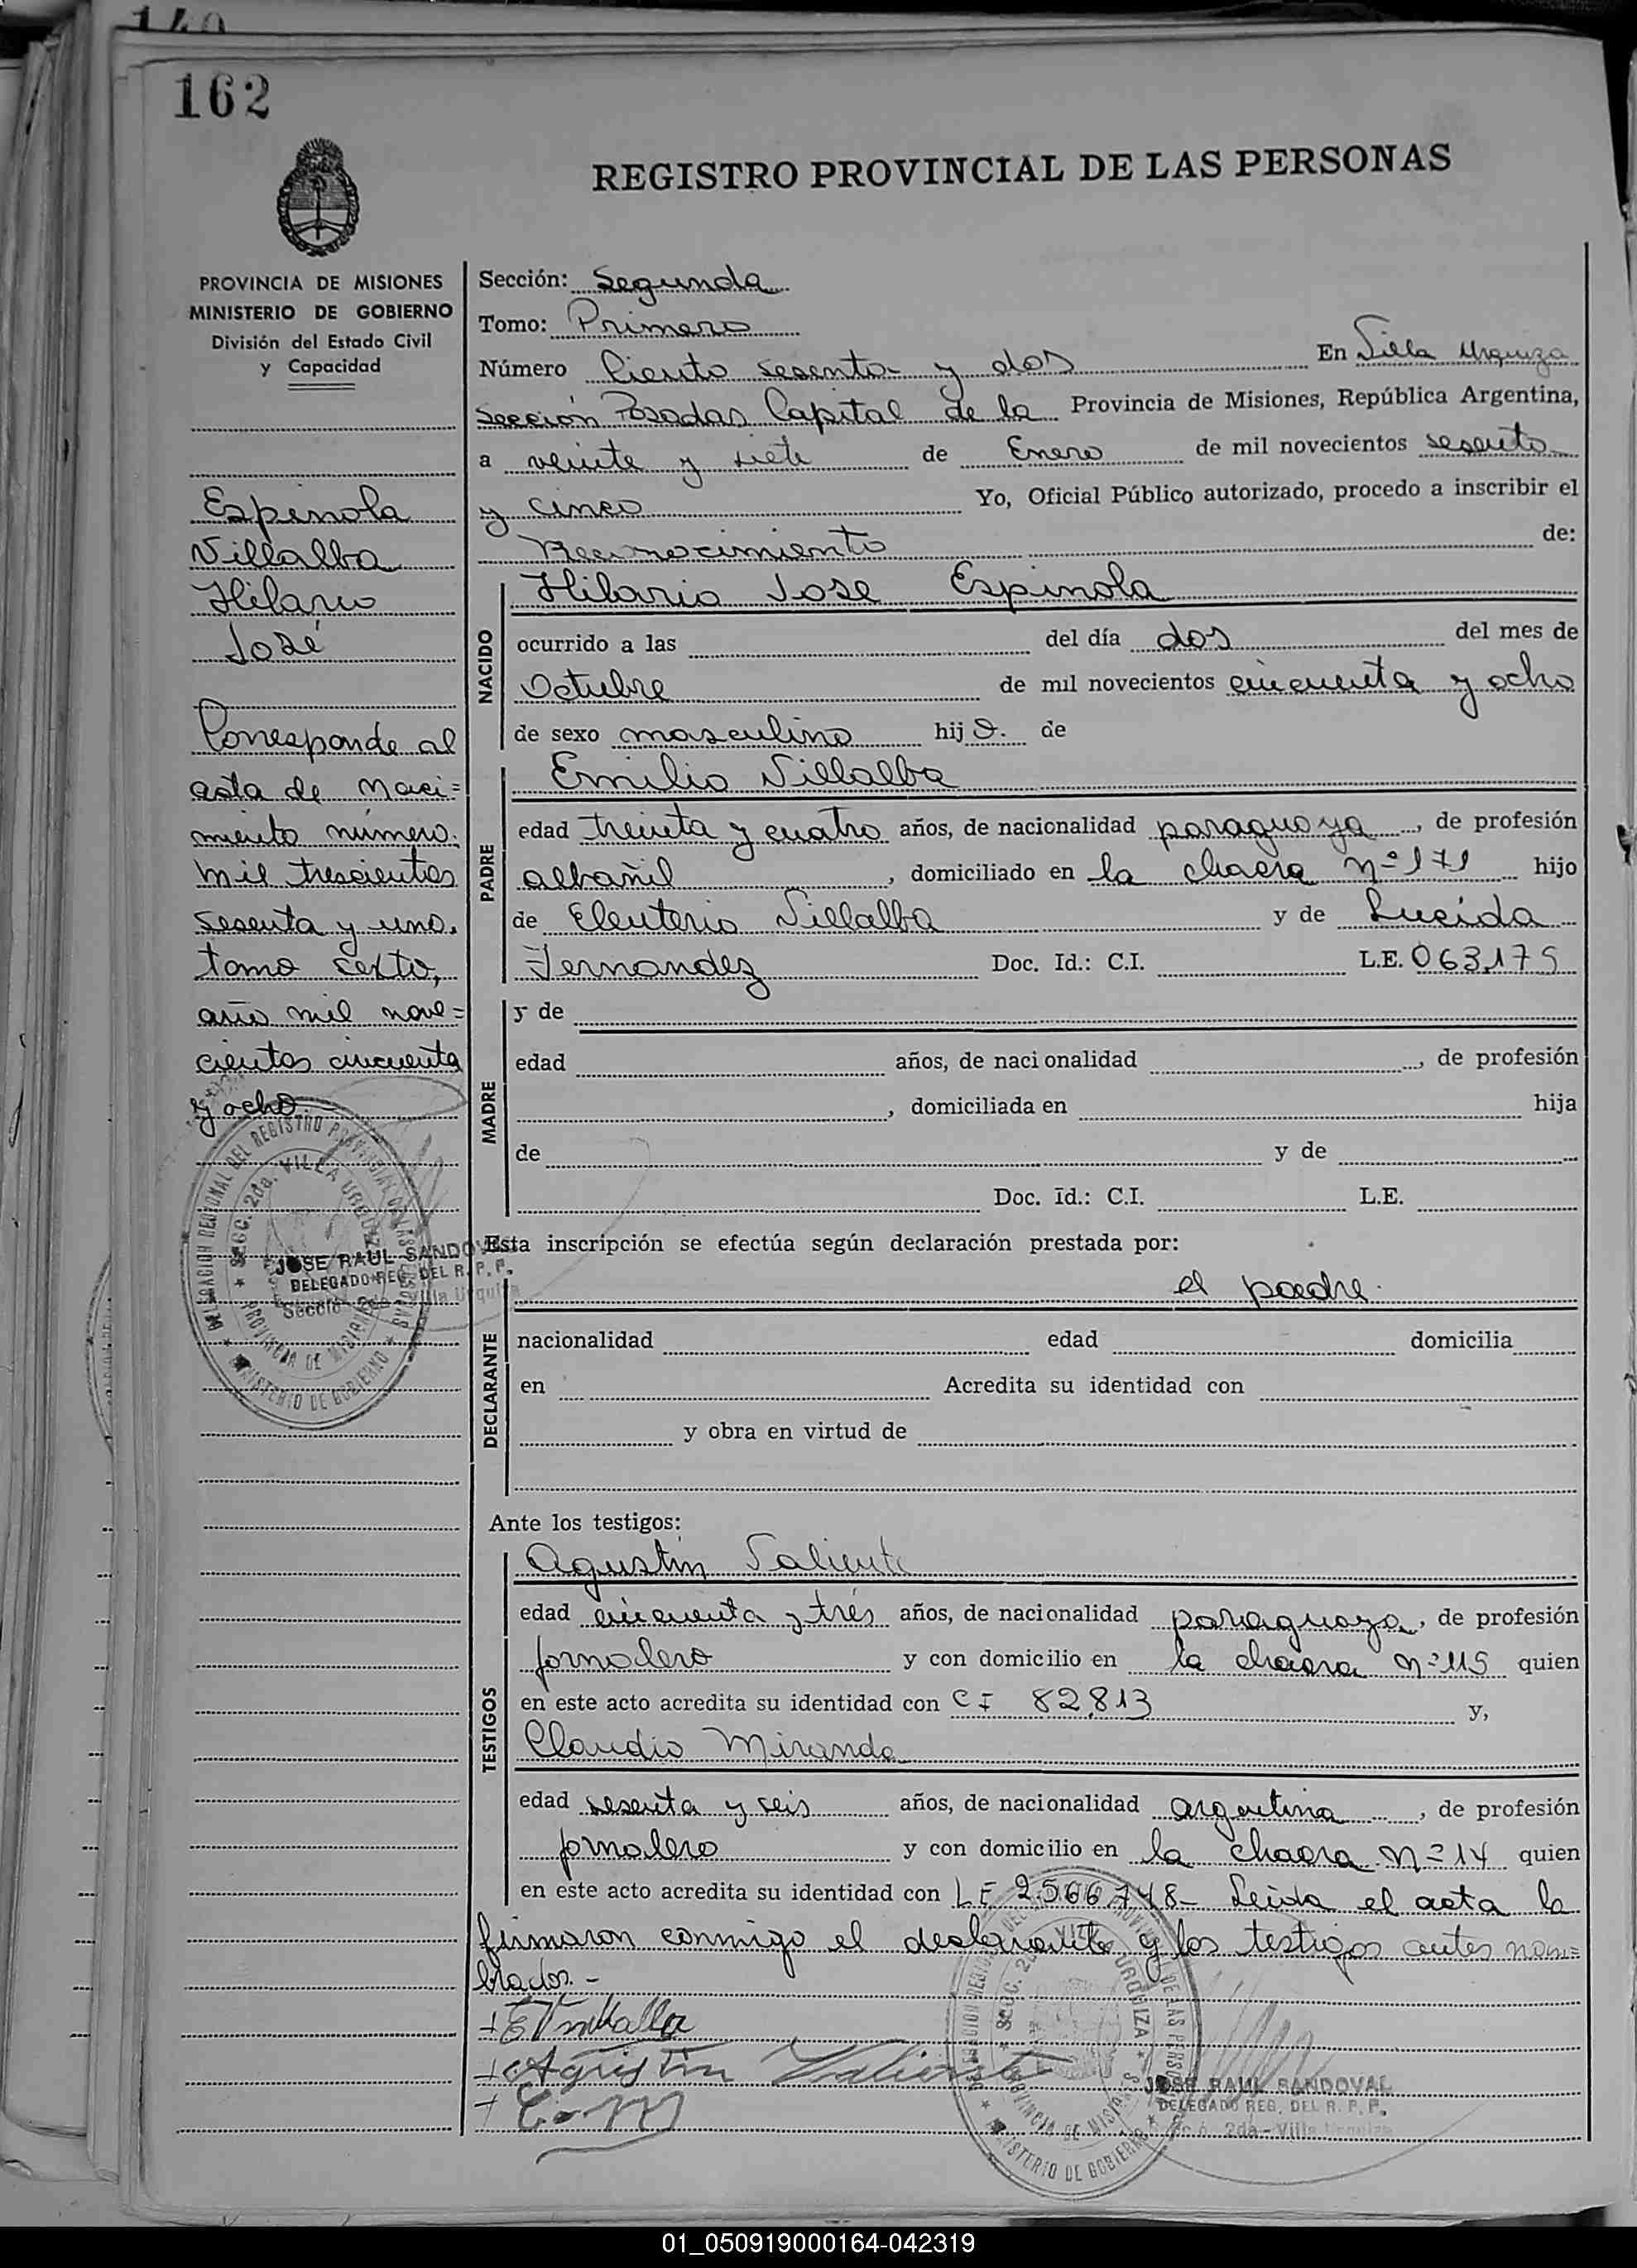 162
REGISTRO PROVINCIAL DE LAS PERSONAS
PROVINCIA DE MISIONES
MINISTERIO DE GOBIERNO
División del Estado Civil
y Capacidad
Espinola
Villalba
Hilario
José
Corresponde al
acta de naci=
miento número
mil trescientos
sesenta y uno,
tomo sexto,
año mil nove=
cientos cincuenta
y ocho.
DELEGACION REGIONAL DEL REGISTRO PROVINCIAL DE LAS PERSONAS
SECC. 2da. VILLA URQUIZA
PROVINCIA DE MISIONES
MINISTERIO DE GOBIERNO
JOSE RAUL SANDOVAL
DELEGADO REG. DEL R. P. P.
Sección 2da Villa Urquiza
Sección: Segunda
Tomo: Primero
Número Ciento sesenta y dos En Villa Urquiza
sección Posadas Capital de la Provincia de Misiones, República Argentina,
a veinte y siete de Enero de mil novecientos sesenta
y cinco Yo, Oficial Público autorizado, procedo a inscribir el
Reconocimiento de:
NACIDO
Hilario Jose Espinola
ocurrido a las del día dos del mes de
Octubre de mil novecientos cincuenta y ocho
de sexo masculino hijo. de
PADRE
Emilio Villalba
edad treinta y cuatro años, de nacionalidad paraguaya, de profesión
albañil, domiciliado en la chacra nº 171 hijo
de Eleuterio Villalba y de Lucida
Fernandez Doc. Id.: C.I. L.E. 063,175
MADRE
y de
edad años, de nacionalidad , de profesión
, domiciliada en hija
de y de
Doc. Id.: C.I. L.E.
Esta inscripción se efectúa según declaración prestada por:
DECLARANTE
el padre.
nacionalidad edad domicilia
en Acredita su identidad con
y obra en virtud de
Ante los testigos:
TESTIGOS
Agustin Valiente
edad cincuenta y tres años, de nacionalidad paraguaya, de profesión
jornalero y con domicilio en la chacra nº 115 quien
en este acto acredita su identidad con CI 82,813 y,
Claudio Miranda
edad sesenta y seis años, de nacionalidad argentina, de profesión
jornalero y con domicilio en la chacra nº 14 quien
en este acto acredita su identidad con LE 2566748- Leida el acta la
firmaron conmigo el declarante y los testigos antes nom=
brados.-
+Agustin Valiente
+ C. M
DELEGACION REGIONAL DEL REGISTRO PROVINCIAL DE LAS PERSONAS
SECC. 2da. VILLA URQUIZA
PROVINCIA DE MISIONES
MINISTERIO DE GOBIERNO
JOSE RAUL SANDOVAL
DELEGADO REG. DEL R. P. P.
2da - Villa Urquiza
01_050919000164-042319